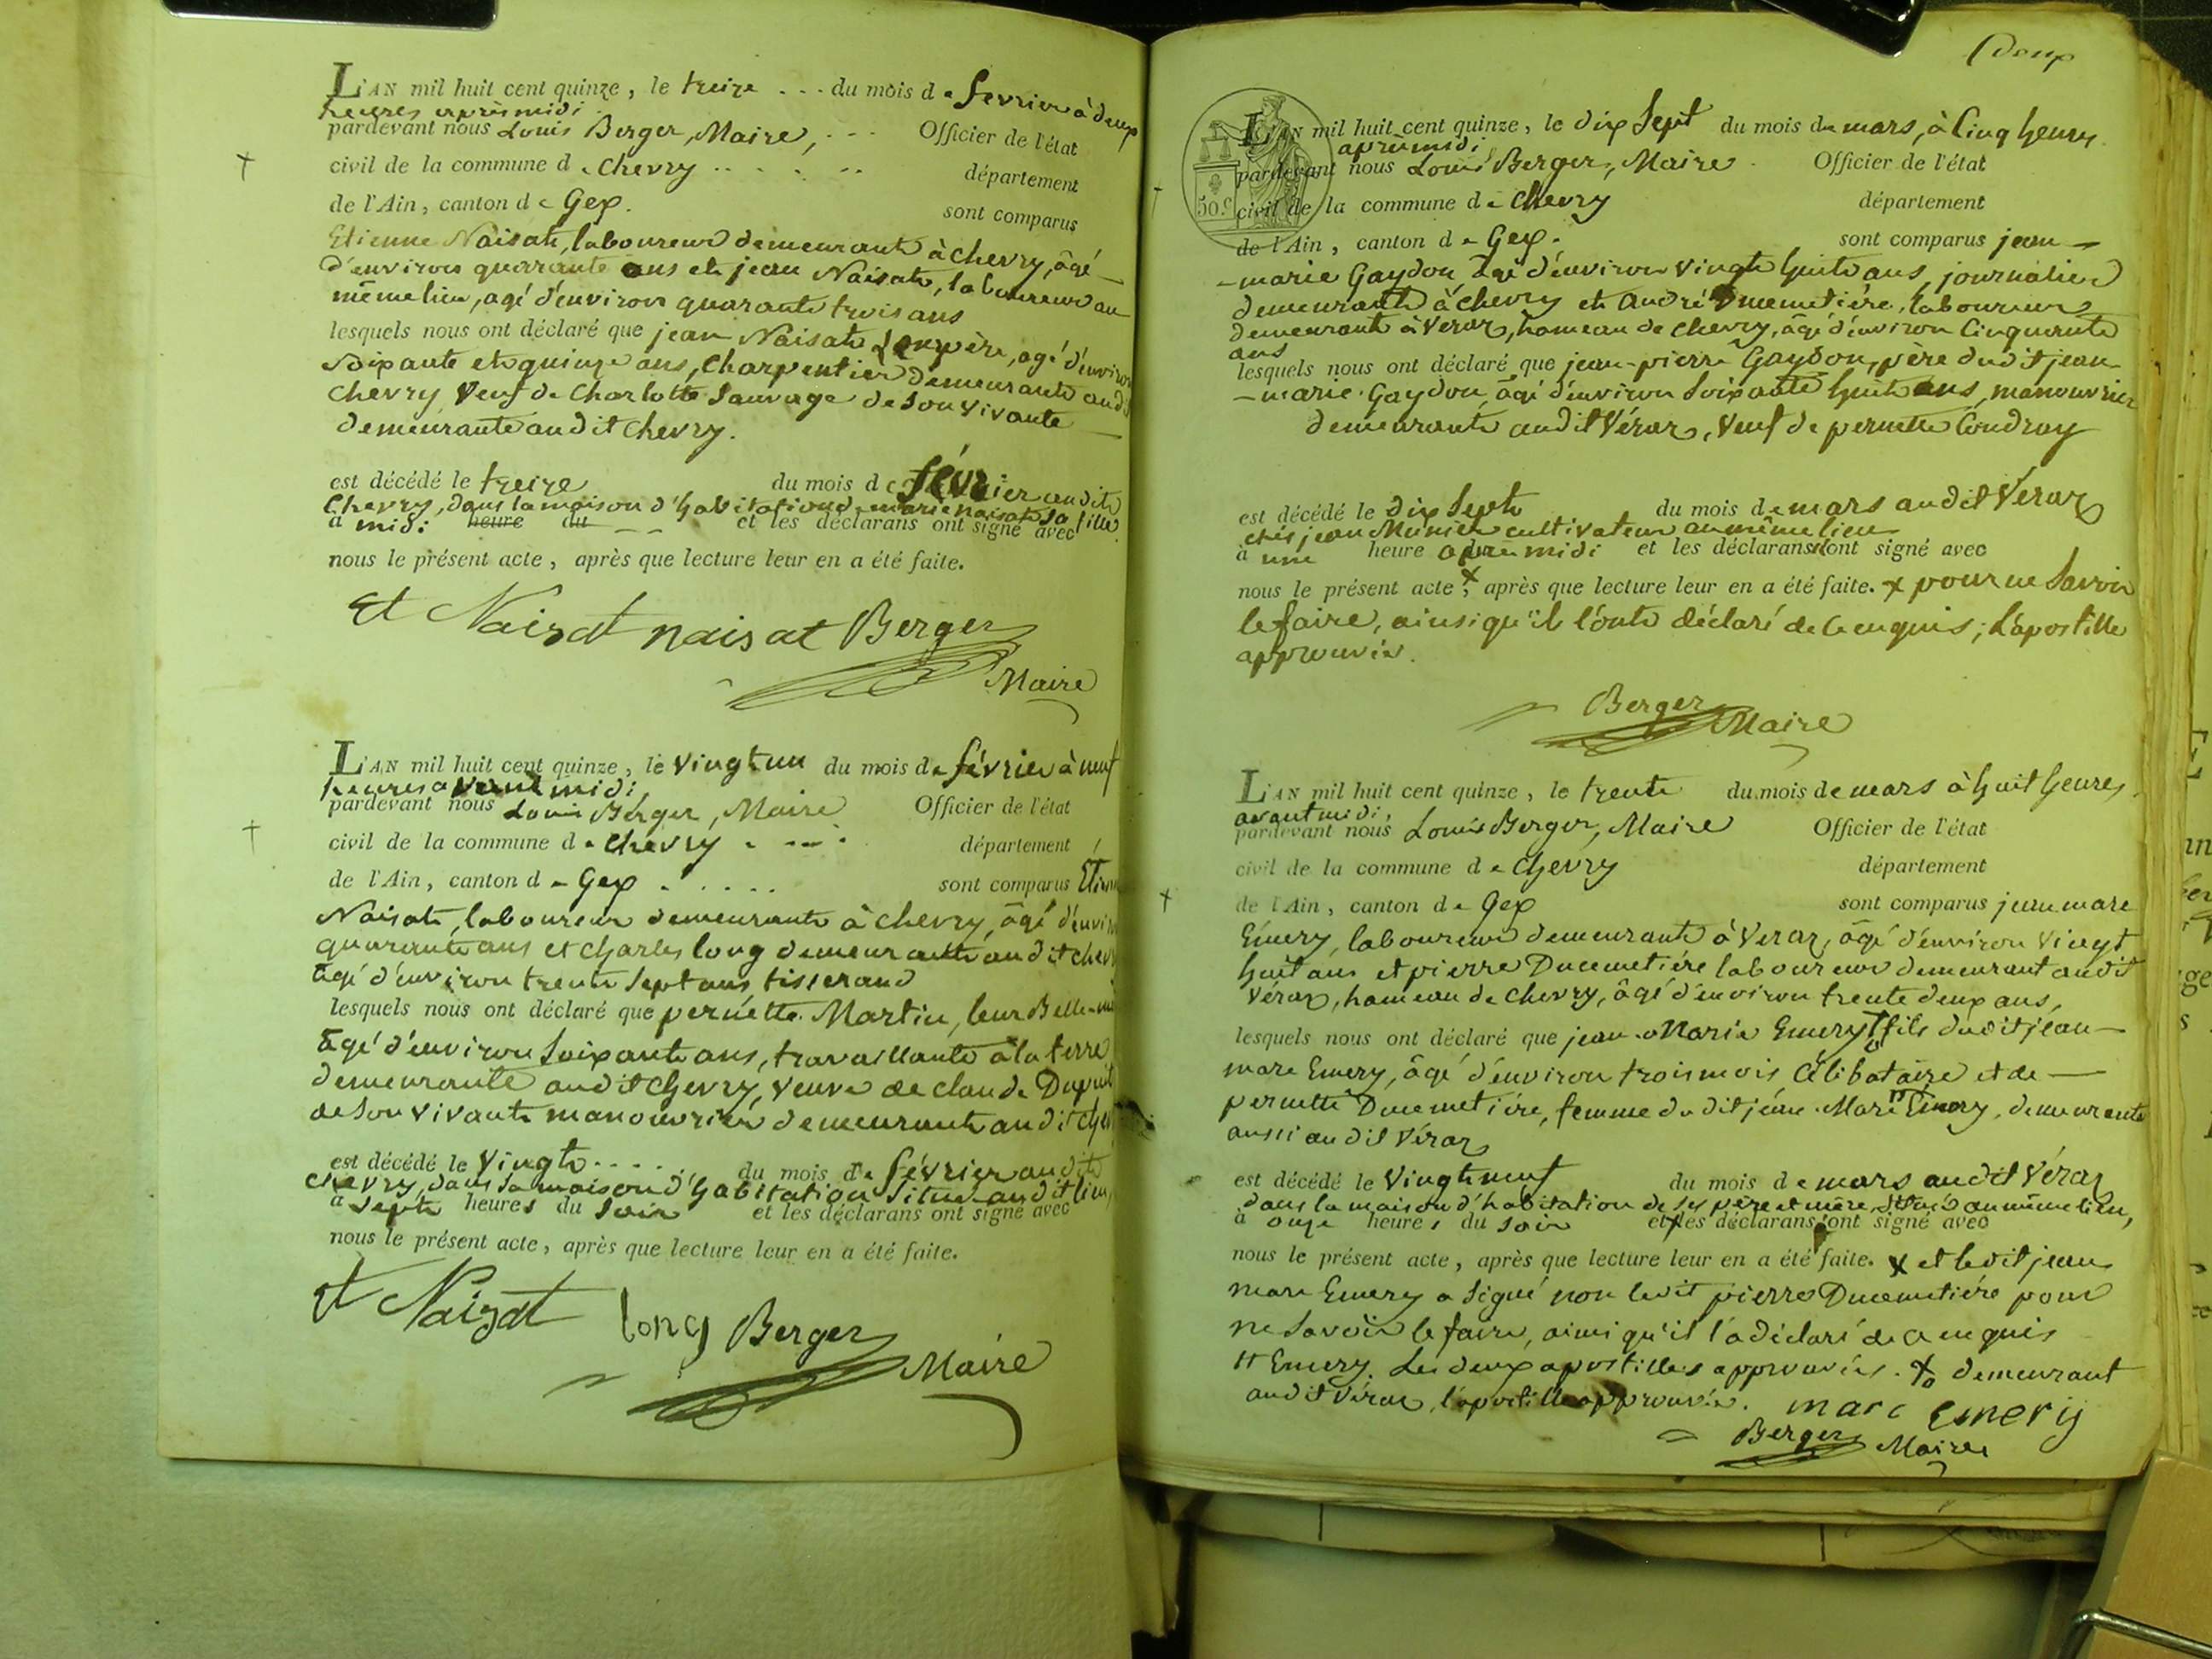 L'AN mil huit cent quinze, le treize ... du mois de fevrier à deux
heures après midi
pardevant nous Louis Berger, Maire, ... Officier de l'état
civil de la commune de Chevry ..... département
de l'Ain, canton de Gex. sont comparus
Etienne Naisat, laboureur demeurant à Chevry, âgé
d'environ quarante ans et jean Naisat, laboureur au
même lieu, agé d'environ quarante trois ans
lesquels nous ont déclaré que jean Naisat père, agé d'environ
Soixante et quinze ans, Charpentier demeurant audit
Chevry Veuf de Charlotte Sauvage de son vivante
demeurante audit Chevry.
est décédé le treize du mois de février audit
Chevry, dans la maison d'habitation de marie naisat sa fille
à midi heure du -- et les déclarans ont signé avec
nous le présent acte, après que lecture leur en a été faite.
Et Naisat naisat Berger
Maire
L'AN mil huit cent quinze, le Vingt un du mois de février à neuf
heures avant midi
pardevant nous Louis Berger, Maire Officier de l'état
civil de la commune de Chevry .... département
de l'Ain, canton de Gex ..... sont comparus Étienne
Naisat, laboureur demeurant à Chevry, âgé d'environ
quarante ans et Charles long demeurant audit Chevry
âgé d'environ trente Sept ans tisserand
lesquels nous ont déclaré que pernette Martin, leur Belle-mère
âgé d'environ Soixante ans, travaillante à la terre
demeurante audit Chevry, veuve de claude Dupuit
de son vivant manouvrier demeurant audit Chevry
est décédé le Vingt .... du mois de février audit
Chevry, dans sa maison d'habitation Située audit lieu,
à Sept heures du Soir et les déclarans ont signé avec
nous le présent acte, après que lecture leur en a été faite.
Et Naisat long Berger
Maire
deux
50.c
L'AN mil huit cent quinze, le dix Sept du mois de mars, à Cinq heures
après midi
pardevant nous Louis Berger, Maire Officier de l'état
civil de la commune de Chevry département
de l'Ain, canton de Gex. sont comparus jean
-marie Gaydon âgé d'environ vingt huit ans, journalier
demeurant à Chevry et André Ducmetière, laboureur
demeurant à Veraz, hameau de Chevry, âgé d'environ Cinquante
ans
lesquels nous ont déclaré que jean-pierre Gaydon, père dudit jean
-marie Gaydon, âgé d'environ Soixante huit ans, manouvrier
demeurant audit Véraz, Veuf de pernette Coudray
est décédé le dix Sept du mois de mars audit Véraz
chés jean Munier cultivateur au même lieu
à une heure après midi et les déclarans n'ont signé avec
nous le présent acte x, après que lecture leur en a été faite. x pour ne Savoir
le faire, ainsi qu'il l'ont déclaré de ce enquis; l'apostille
approuvée.
Berger Maire
L'AN mil huit cent quinze, le trente du mois de mars à huit heures
avant midi,
pardevant nous Louis Berger, Maire Officier de l'état
civil de la commune de Chevry département
de l'Ain, canton de Gex sont comparus jean marc
Emery, laboureur demeurant à Veraz, âgé d'environ Vingt
huit ans et pierre Ducmetière laboureur demeurant audit
Véraz, hameau de Chevry, âgé d'environ trente deux ans,
lesquels nous ont déclaré que jean Marie Emery fils dudit jean
marc Emery, âgé d'environ trois mois, Célibataire et de
pernette Ducmetière, femme dudit jean Marc Emery, demeurante
aussi audit Véraz
est décédé le Vingt neuf du mois de mars audit Véraz
dans la maison d'habitation de ses père et mère, située au même lieu,
à onze heures du soir et les déclarans ont signé avec
nous le présent acte, après que lecture leur en a été faite. x et ledit jean
marc Emery a Signé non ledit pierre Ducmetière pour
ne Savoir le faire, ainsi qu'il l'a déclaré de ce enquis
# Emery. Les deux apostilles approuvées. demeurant
audit Véraz, l'apostille approuvée. marc Emery
Berger Maire